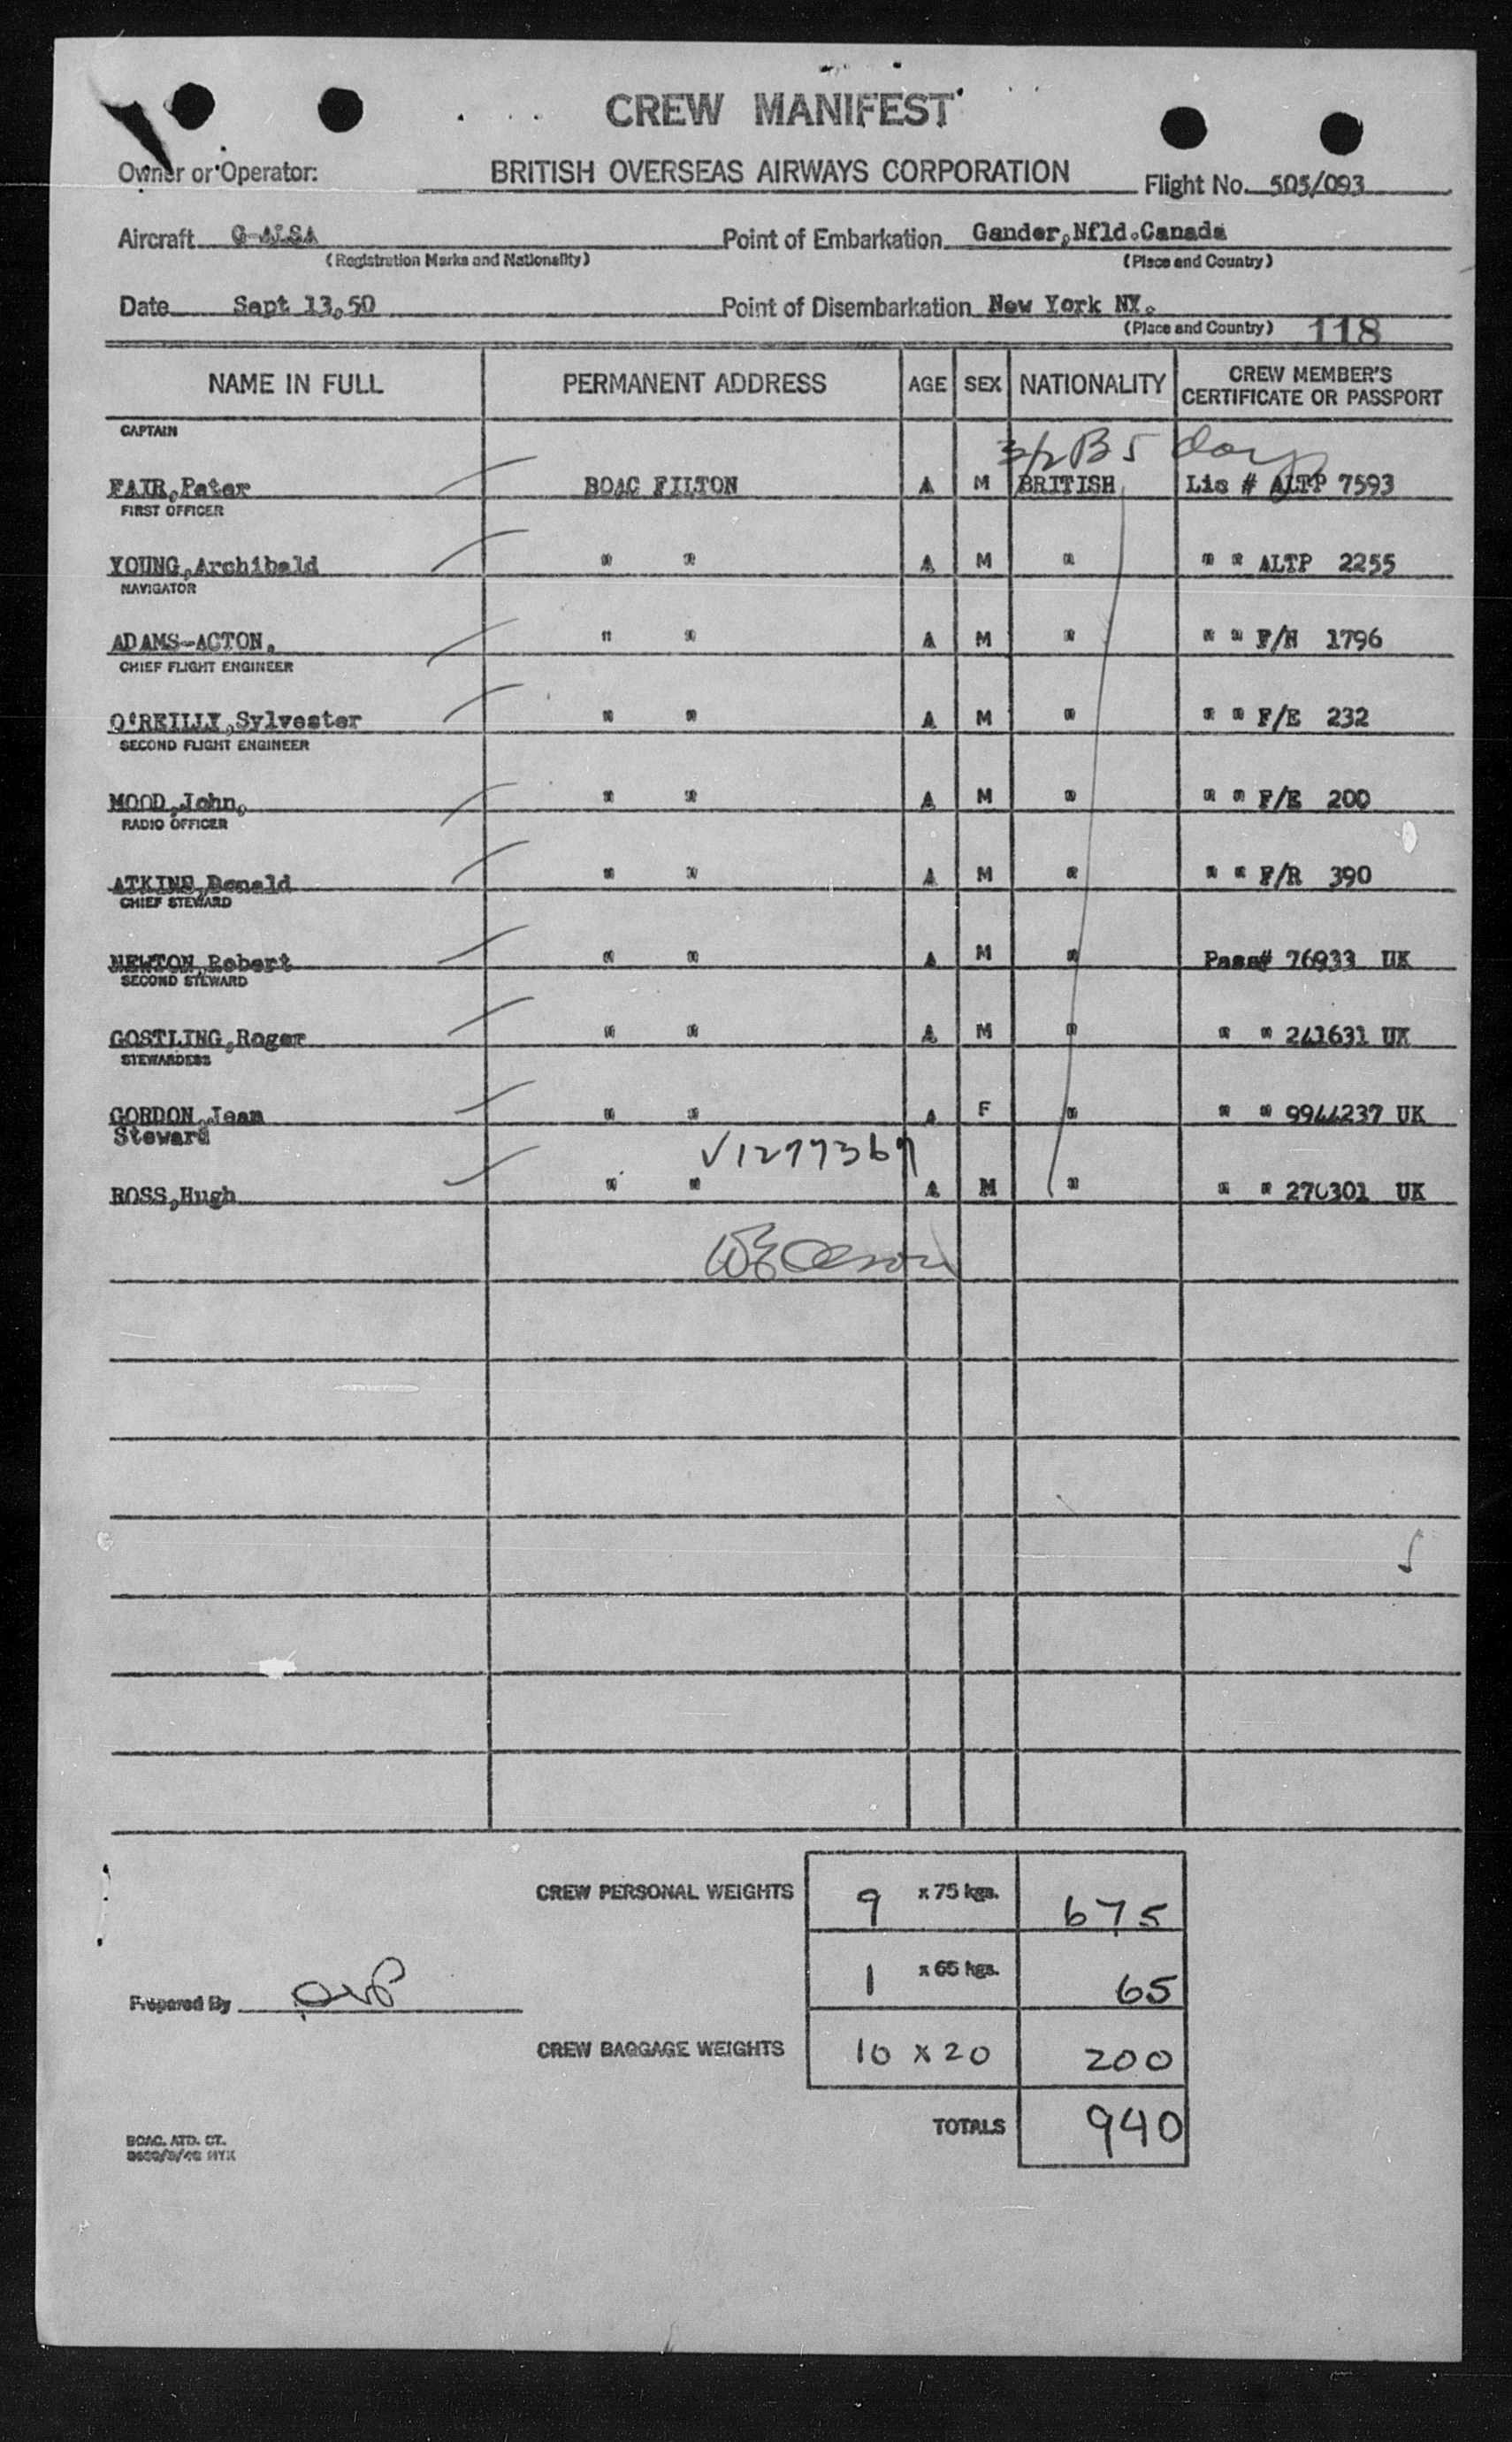 CREW MANIFEST
Owner or Operator: BRITISH OVERSEAS AIRWAYS CORPORATION Flight No. 505/093
Aircraft G-ALSA Point of Embarkation Gander,Nfld.Canada
(Registration Marks and Nationality) (Place and Country)
Date Sept 13,50 Point of Disembarkation New York NY.
(Place and Country) 118
NAME IN FULL PERMANENT ADDRESS AGE SEX NATIONALITY CREW MEMBER'S CERTIFICATE OR PASSPORT
CAPTAIN
3/2 B 5 days
FAIR,Peter BOAC FILTON A M BRITISH Lic # ALTP 7593
FIRST OFFICER
YOUNG,Archibald " " A M " " " ALTP 2255
NAVIGATOR
ADAMS-ACTON. " " A M " " " F/N 1796
CHIEF FLIGHT ENGINEER
O'REILLY,Sylvester " " A M " " " F/E 232
SECOND FLIGHT ENGINEER
MOOD,John, " " A M " " " F/E 200
RADIO OFFICER
ATKINS,Donald " " A M " " " F/R 390
CHIEF STEWARD
NEWTON,Robert " " A M " Pass# 76933 UK
SECOND STEWARD
GOSTLING,Roger " " A M " " " 241631 UK
STEWARDESS
GORDON,Jean " " A F " " " 9944237 UK
Steward
V1277369
ROSS,Hugh " " A M " " " 270301 UK
CREW PERSONAL WEIGHTS 9 x 75 kgs. 675
1 x 65 kgs. 65
Prepared By
CREW BAGGAGE WEIGHTS 10 x 20 200
TOTALS 940
BOAC. ATD. CT.